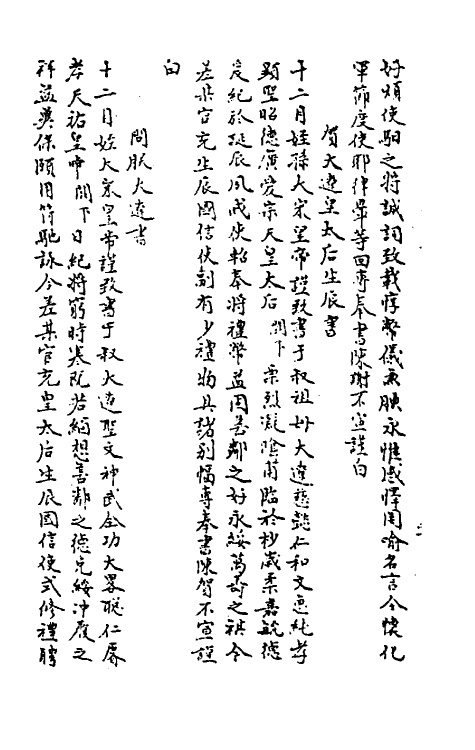 好煩使馹之將誠詞致載惇幣儀兼腆永惟感懌罔喻名言今懷化
軍節度使耶律曅等回專奉書陳謝不宣謹白
賀大遼皇太后生辰書
十二月姪孫大宋皇帝謹致書于叔祖母大遼慈懿仁和文惠純孝
顯聖昭德廣愛宗天皇太后闕下栗烈凝陰甫臨於杪歲柔嘉毓德
爰紀於誕辰夙戒使軺奉將禮幣益固善鄰之好永綏萬壽之祺今
差某官充生辰國信使副有少禮物具諸別幅專奉書陳賀不宣謹
白
問候大遼書
十二月姪大宋皇帝謹致書于叔大遼聖文神武全功大略聰仁睿
孝天祐皇帝闕下日紀將窮時寒既若緬想善鄰之德克綏沖履之
祥益冀保頤用符馳詠今差某官充皇太后生辰國信使式修禮聘